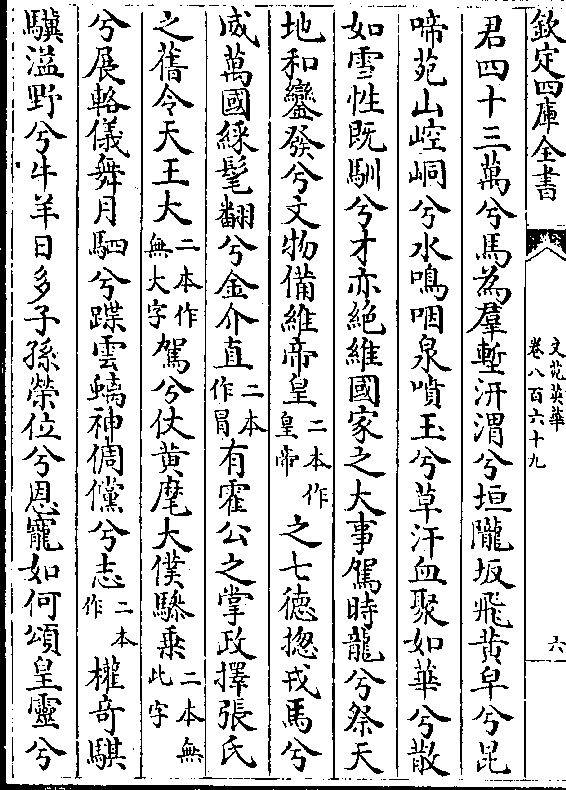 欽定四庫全書
文苑英華
卷八百六十九
六
君四十三萬兮馬為羣塹汧渭兮垣隴坂飛黄皁兮昆
啼苑山崆峒兮水鳴咽泉噴玉兮草汗血聚如華兮散
如雪性既馴兮才亦絶維國家之大事駕時龍兮祭天
地和鑾發兮文物備維帝皇二本作皇帝之七德揔戎馬兮
威萬國綵髦翻兮金介直二本作冒有霍公之掌政擇張氏
之舊令天王大二本作無大字駕兮仗黄麾大僕驂乗二本無此字
兮展輅儀舞月駟兮蹀雲螭神倜儻兮志二本作權奇騏
驥溢野兮牛羊日多子孫榮位兮恩寵如何頌皇靈兮